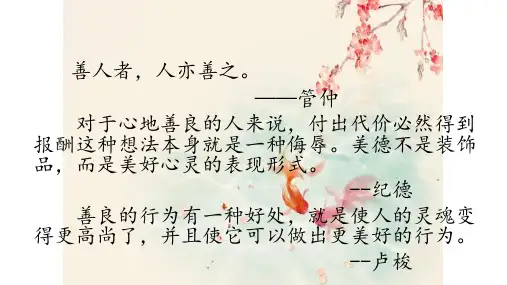 善人者，人亦善之。
——管仲
对于心地善良的人来说，付出代价必然得到
报酬这种想法本身就是一种侮辱。美德不是装饰
品，而是美好心灵的表现形式。
--纪德
善良的行为有一种好处，就是使人的灵魂变
得更高尚了，并且使它可以做出更美好的行为。
--卢梭